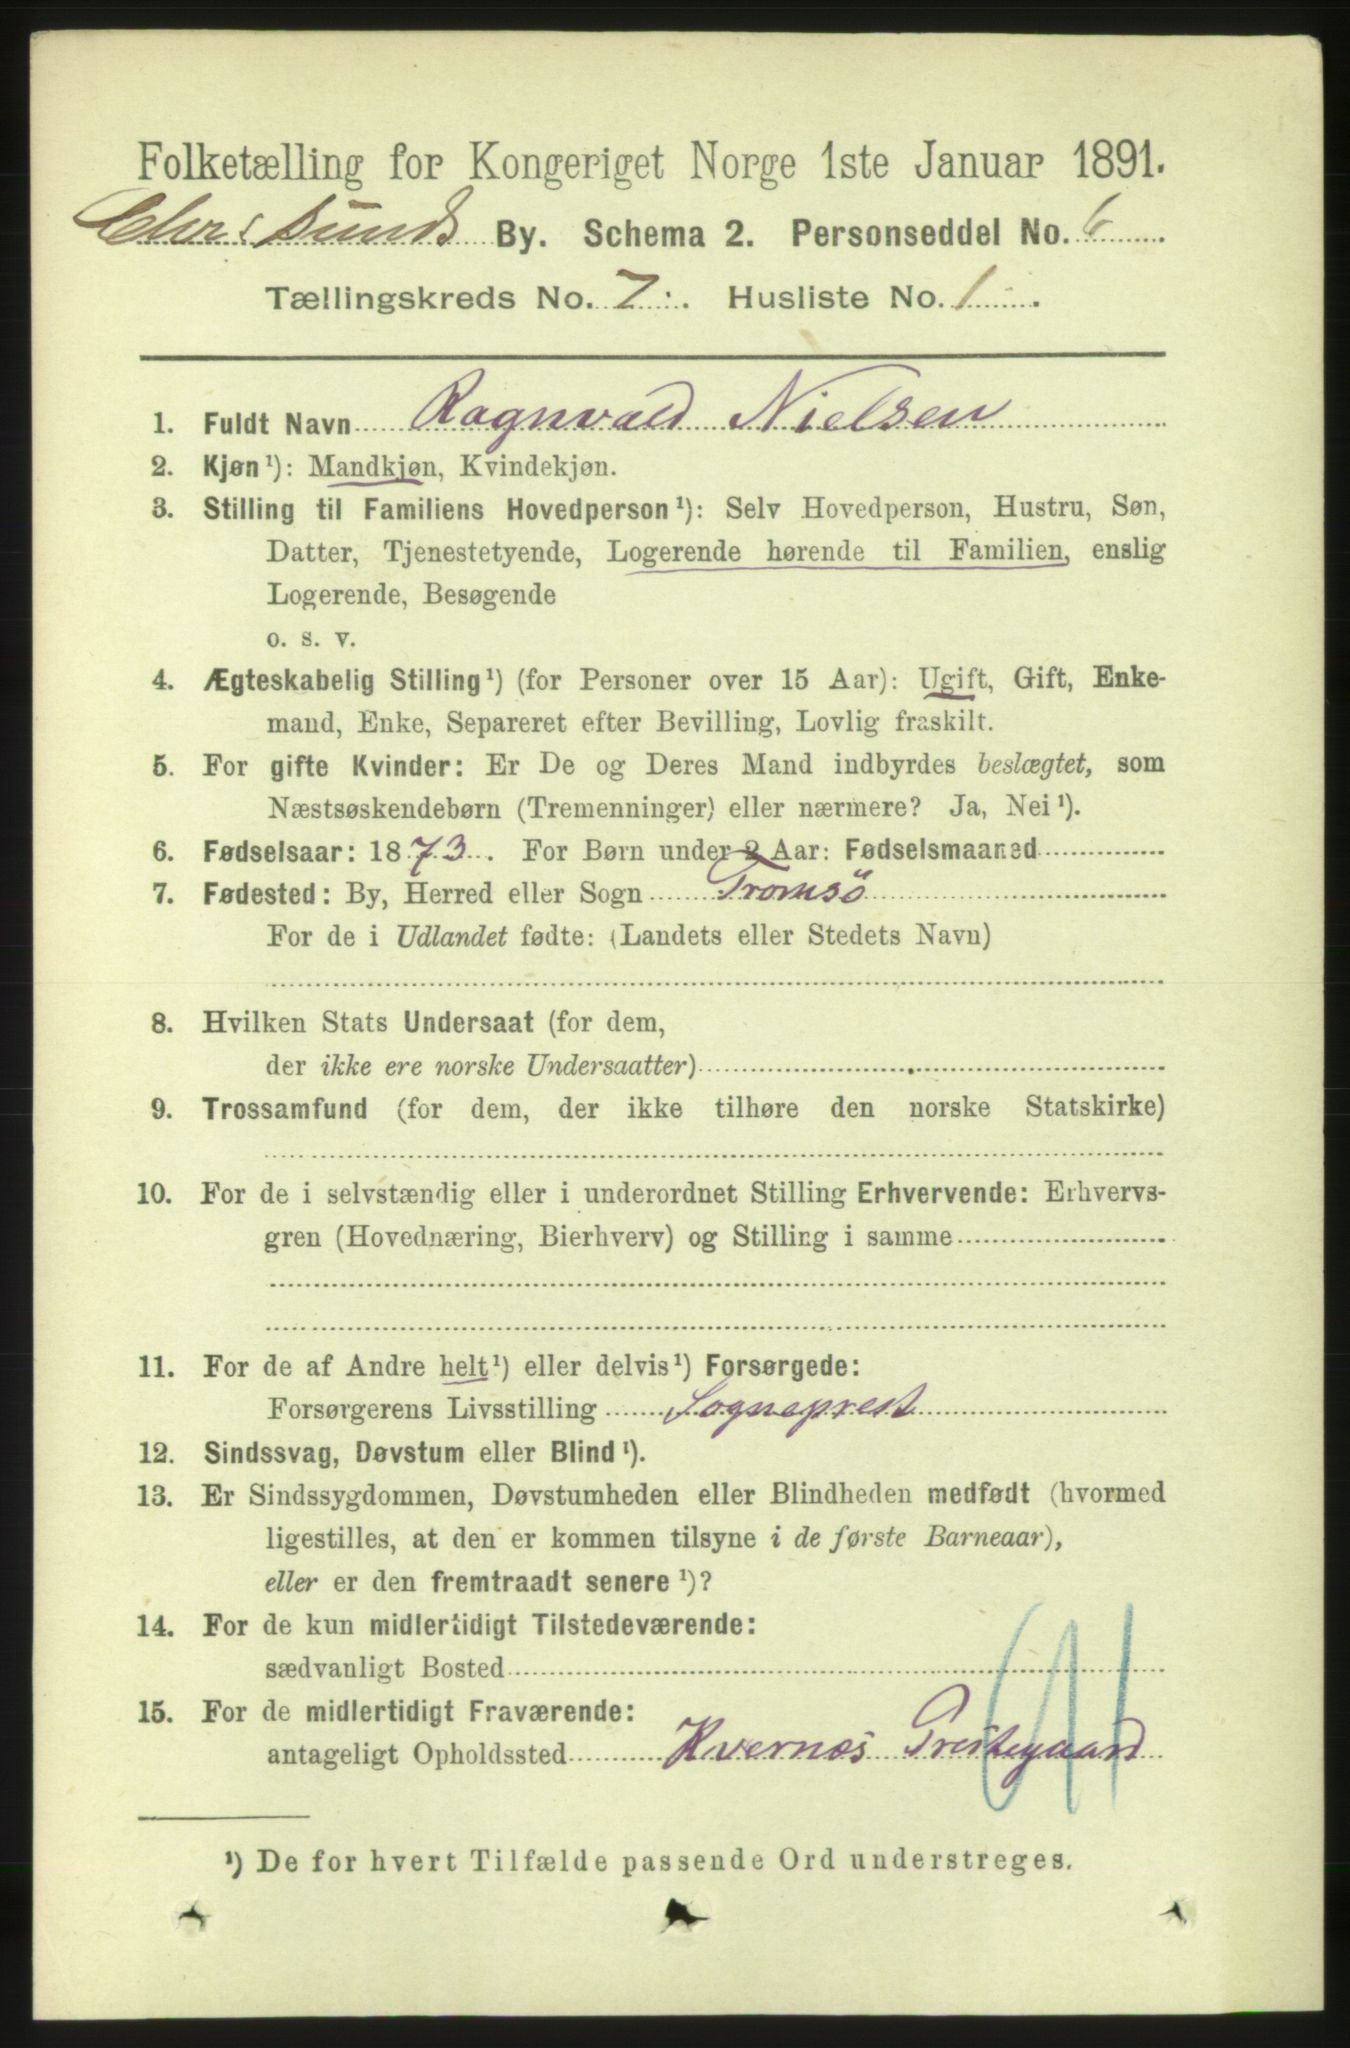 Folketælling for Kongeriget Norge 1ste Januar 1891.
Chr:sunds By. Schema 2. Personseddel No. 6
Tællingskreds No. 7. Husliste No. 1.
1. Fuldt Navn Ragnvald Nielsen
2. Kjøn¹): Mandkjøn, Kvindekjøn.
3. Stilling til Familiens Hovedperson¹): Selv Hovedperson, Hustru, Søn,
Datter, Tjenestetyende, Logerende hørende til Familien, enslig
Logerende, Besøgende
o. s. v.
4. Ægteskabelig Stilling¹) (for Personer over 15 Aar): Ugift, Gift, Enke-
mand, Enke, Separeret efter Bevilling, Lovlig fraskilt.
5. For gifte Kvinder: Er De og Deres Mand indbyrdes beslægtet, som
Næstsøskendebørn (Tremenninger) eller nærmere? Ja, Nei¹).
6. Fødselsaar: 1873. For Børn under 2 Aar: Fødselsmaaned
7. Fødested: By, Herred eller Sogn Tromsö
For de i Udlandet fødte: (Landets eller Stedets Navn)
8. Hvilken Stats Undersaat (for dem,
der ikke ere norske Undersaatter)
9. Trossamfund (for dem, der ikke tilhøre den norske Statskirke)
10. For de i selvstændig eller i underordnet Stilling Erhvervende: Erhvervs-
gren (Hovednæring, Bierhverv) og Stilling i samme
11. For de af Andre helt¹) eller delvis¹) Forsørgede:
Forsørgerens Livsstilling Sogneprest
12. Sindssvag, Døvstum eller Blind¹).
13. Er Sindssygdommen, Døvstumheden eller Blindheden medfødt (hvormed
ligestilles, at den er kommen tilsyne i de første Barneaar),
eller er den fremtraadt senere¹)?
14. For de kun midlertidigt Tilstedeværende:
sædvanligt Bosted
15. For de midlertidigt Fraværende:
antageligt Opholdssted Kvernes Prestegaard
¹) De for hvert Tilfælde passende Ord understreges.